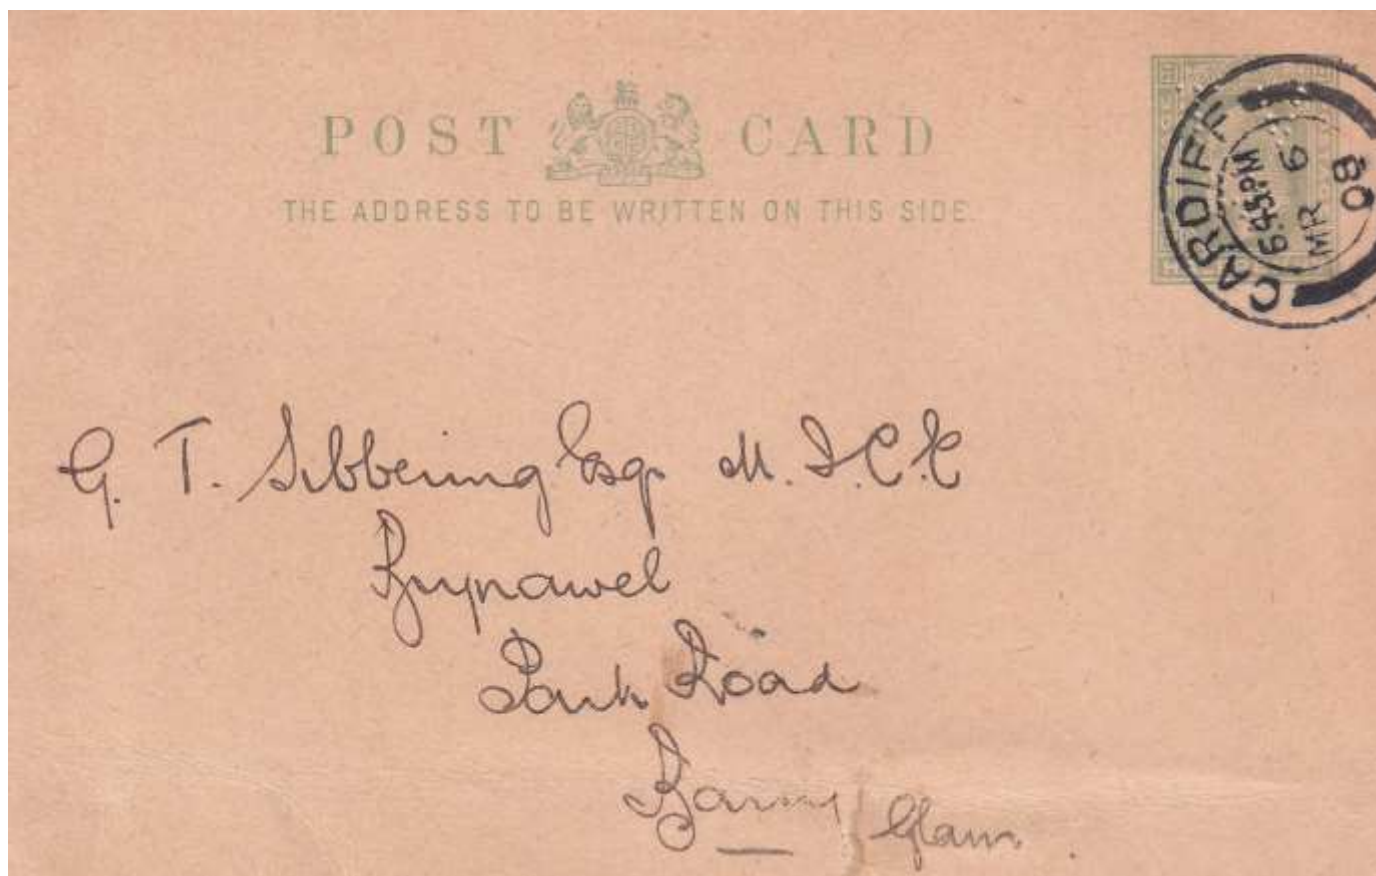 POST CARD
THE ADDRESS TO BE WRITTEN ON THIS SIDE.
CARDIFF
6.45PM
MR 6
08
G. T. Sibbering Esq. M.I.C.E
Brynawel
Park Road
Barry Glam.